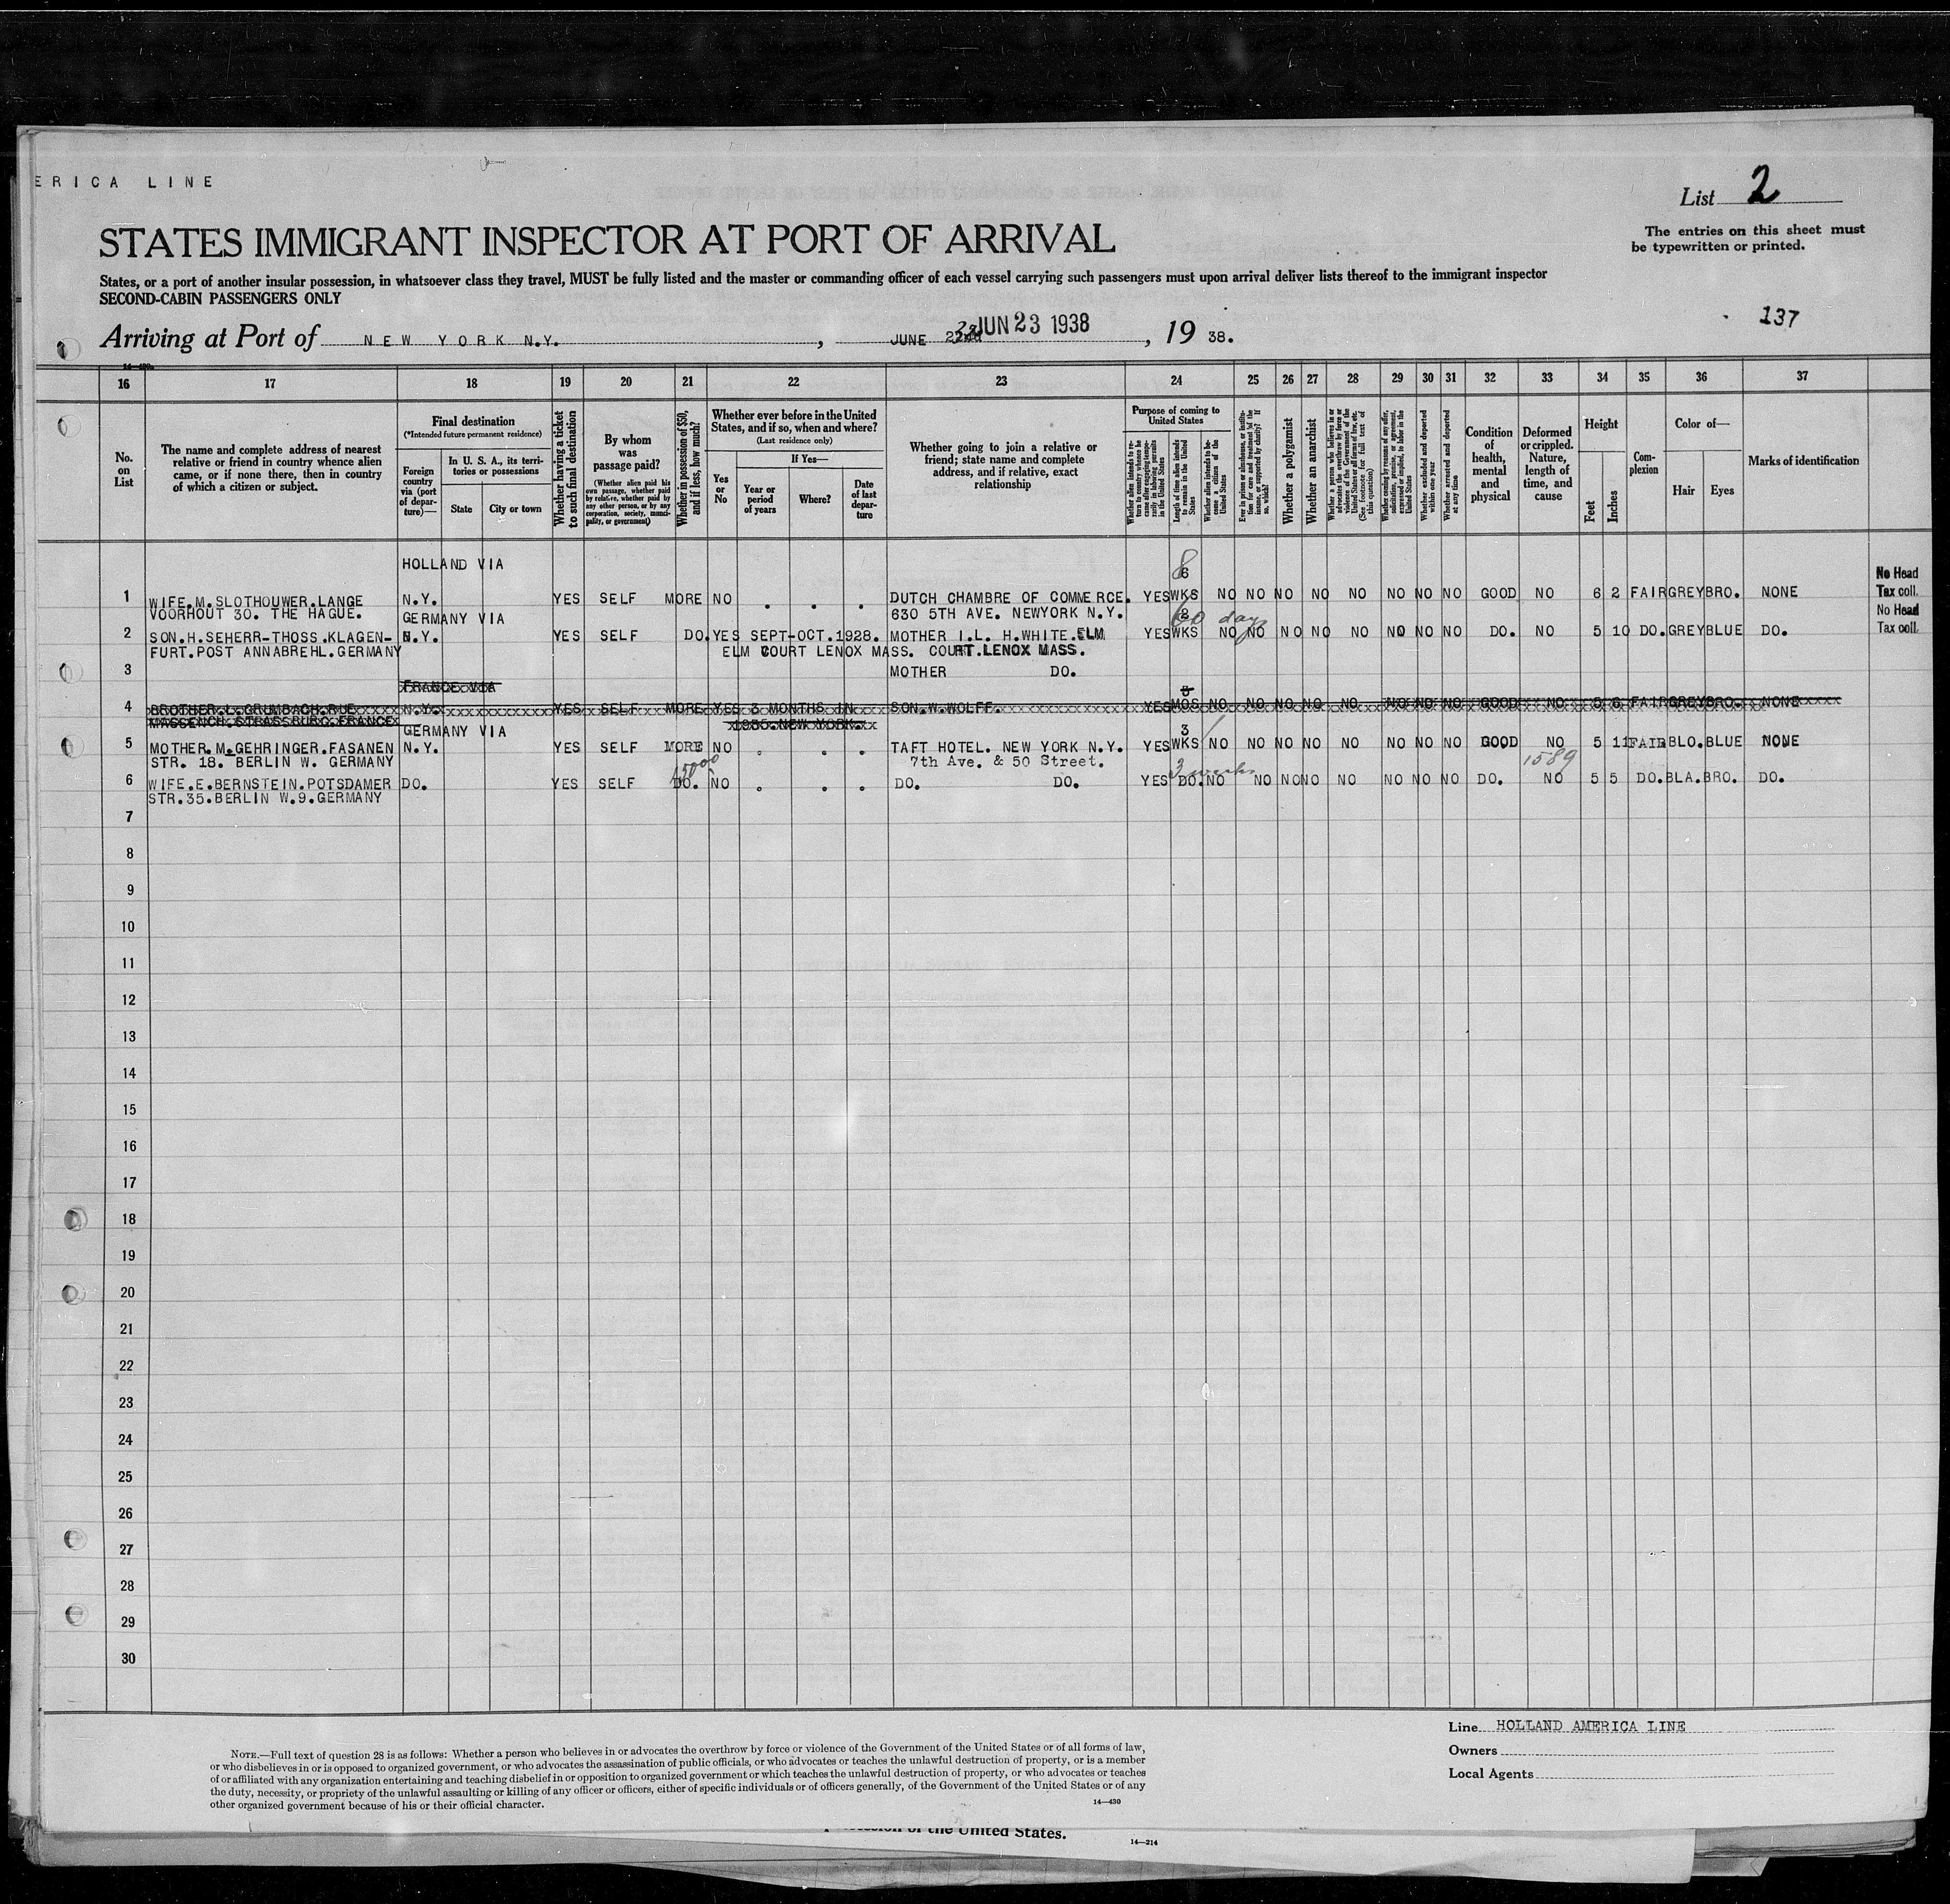 ERICA LINE
List 2
STATES IMMIGRANT INSPECTOR AT PORT OF ARRIVAL
The entries on this sheet must
be typewritten or printed.
States, or a port of another insular possession, in whatsoever class they travel, MUST be fully listed and the master or commanding officer of each vessel carrying such passengers must upon arrival deliver lists thereof to the immigrant inspector
SECOND-CABIN PASSENGERS ONLY
137
Arriving at Port of NEW YORK N.Y., JUNE JUN 23 1938, 19 38.
16 17 18 19 20 21 22 23 24 25 26 27 28 29 30 31 32 33 34 35 36 37
No. on List
The name and complete address of nearest relative or friend in country whence alien came, or if none there, then in country of which a citizen or subject.
Final destination
(*Intended future permanent residence)
Foreign country via (port of departure)—
In U. S. A., its territories or possessions
State
City or town
Whether having a ticket to such final destination
By whom was passage paid?
(Whether alien paid his own passage, whether paid by relative, whether paid by any other person, or by any corporation, society, municipality, or government)
Whether in possession of $50, and if less, how much?
Whether ever before in the United States, and if so, when and where?
(Last residence only)
Yes or No
If Yes—
Year or period of years
Where?
Date of last departure
Whether going to join a relative or friend; state name and complete address, and if relative, exact relationship
Purpose of coming to United States
Whether alien intends to return to country whence he came after engaging temporarily in laboring pursuits in the United States
Length of time alien intends to remain in the United States
Whether alien intends to become a citizen of the United States
Ever in prison or almshouse, or institution for care and treatment of the insane, or supported by charity? If so, which?
Whether a polygamist
Whether an anarchist
Whether a person who believes in or advocates the overthrow by force or violence of the Government of the United States or all forms of law, etc. (See footnote for full text of this question)
Whether coming by reason of any offer, solicitation, promise, or agreement, expressed or implied, to labor in the United States
Whether excluded and deported within one year
Whether arrested and deported at any time
Condition of health, mental and physical
Deformed or crippled. Nature, length of time, and cause
Height
Feet
Inches
Complexion
Color of—
Hair
Eyes
Marks of identification
HOLLAND VIA 8 6 No Head
1 WIFE.M.SLOTHOUWER.LANGE N.Y. YES SELF MORE NO . . . DUTCH CHAMBRE OF COMMERCE. YES WKS NO NO NO NO NO NO NO NO GOOD NO 6 2 FAIR GREY BRO. NONE Tax coll.
VOORHOUT 30. THE HAGUE. GERMANY VIA 630 5TH AVE. NEWYORK N.Y. 60 days 8 No Head
2 SON.H.SEHERR-THOSS.KLAGEN- N.Y. YES SELF DO. YES SEPT-OCT.1928. MOTHER I.L. H.WHITE.ELM YES WKS NO NO NO NO NO NO NO NO DO. NO 5 10 DO. GREY BLUE DO. Tax coll.
FURT.POST ANNABREHL.GERMANY ELM COURT LENOX MASS. COURT.LENOX MASS.
3 MOTHER DO.
FRANCE VIA
4 BROTHER.L.GRUMBACH.RUE N.Y. YES SELF MORE YES 3 MONTHS IN SON.W.WOLFF. YES MOS NO NO NO NO NO NO NO NO GOOD NO 5 6 FAIR GREY BRO. NONE
MASSENCH.STRASSBURG.FRANCE 1935.NEW YORK.
GERMANY VIA 3
5 MOTHER.M.GEHRINGER.FASANEN N.Y. YES SELF MORE NO . . . TAFT HOTEL. NEW YORK N.Y. YES WKS NO NO NO NO NO NO NO NO GOOD NO 5 11 FAIR BLO. BLUE NONE
STR. 18. BERLIN W. GERMANY 7th Ave. & 50 Street. 1589
3 weeks
6 WIFE.E.BERNSTEIN.POTSDAMER DO. YES SELF DO. NO . . . DO. DO. YES DO. NO NO NO NO NO NO NO NO DO. NO 5 5 DO. BLA. BRO. DO.
STR.35.BERLIN W.9.GERMANY
7
8
9
10
11
12
13
14
15
16
17
18
19
20
21
22
23
24
25
26
27
28
29
30
Line HOLLAND AMERICA LINE
Owners
Local Agents
NOTE.—Full text of question 28 is as follows: Whether a person who believes in or advocates the overthrow by force or violence of the Government of the United States or of all forms of law,
or who disbelieves in or is opposed to organized government, or who advocates the assassination of public officials, or who advocates or teaches the unlawful destruction of property, or is a member
of or affiliated with any organization entertaining and teaching disbelief in or opposition to organized government or which teaches the unlawful destruction of property, or who advocates or teaches
the duty, necessity, or propriety of the unlawful assaulting or killing of any officer or officers, either of specific individuals or of officers generally, of the Government of the United States or of any
other organized government because of his or their official character.
14—430
of the United States.
14—214